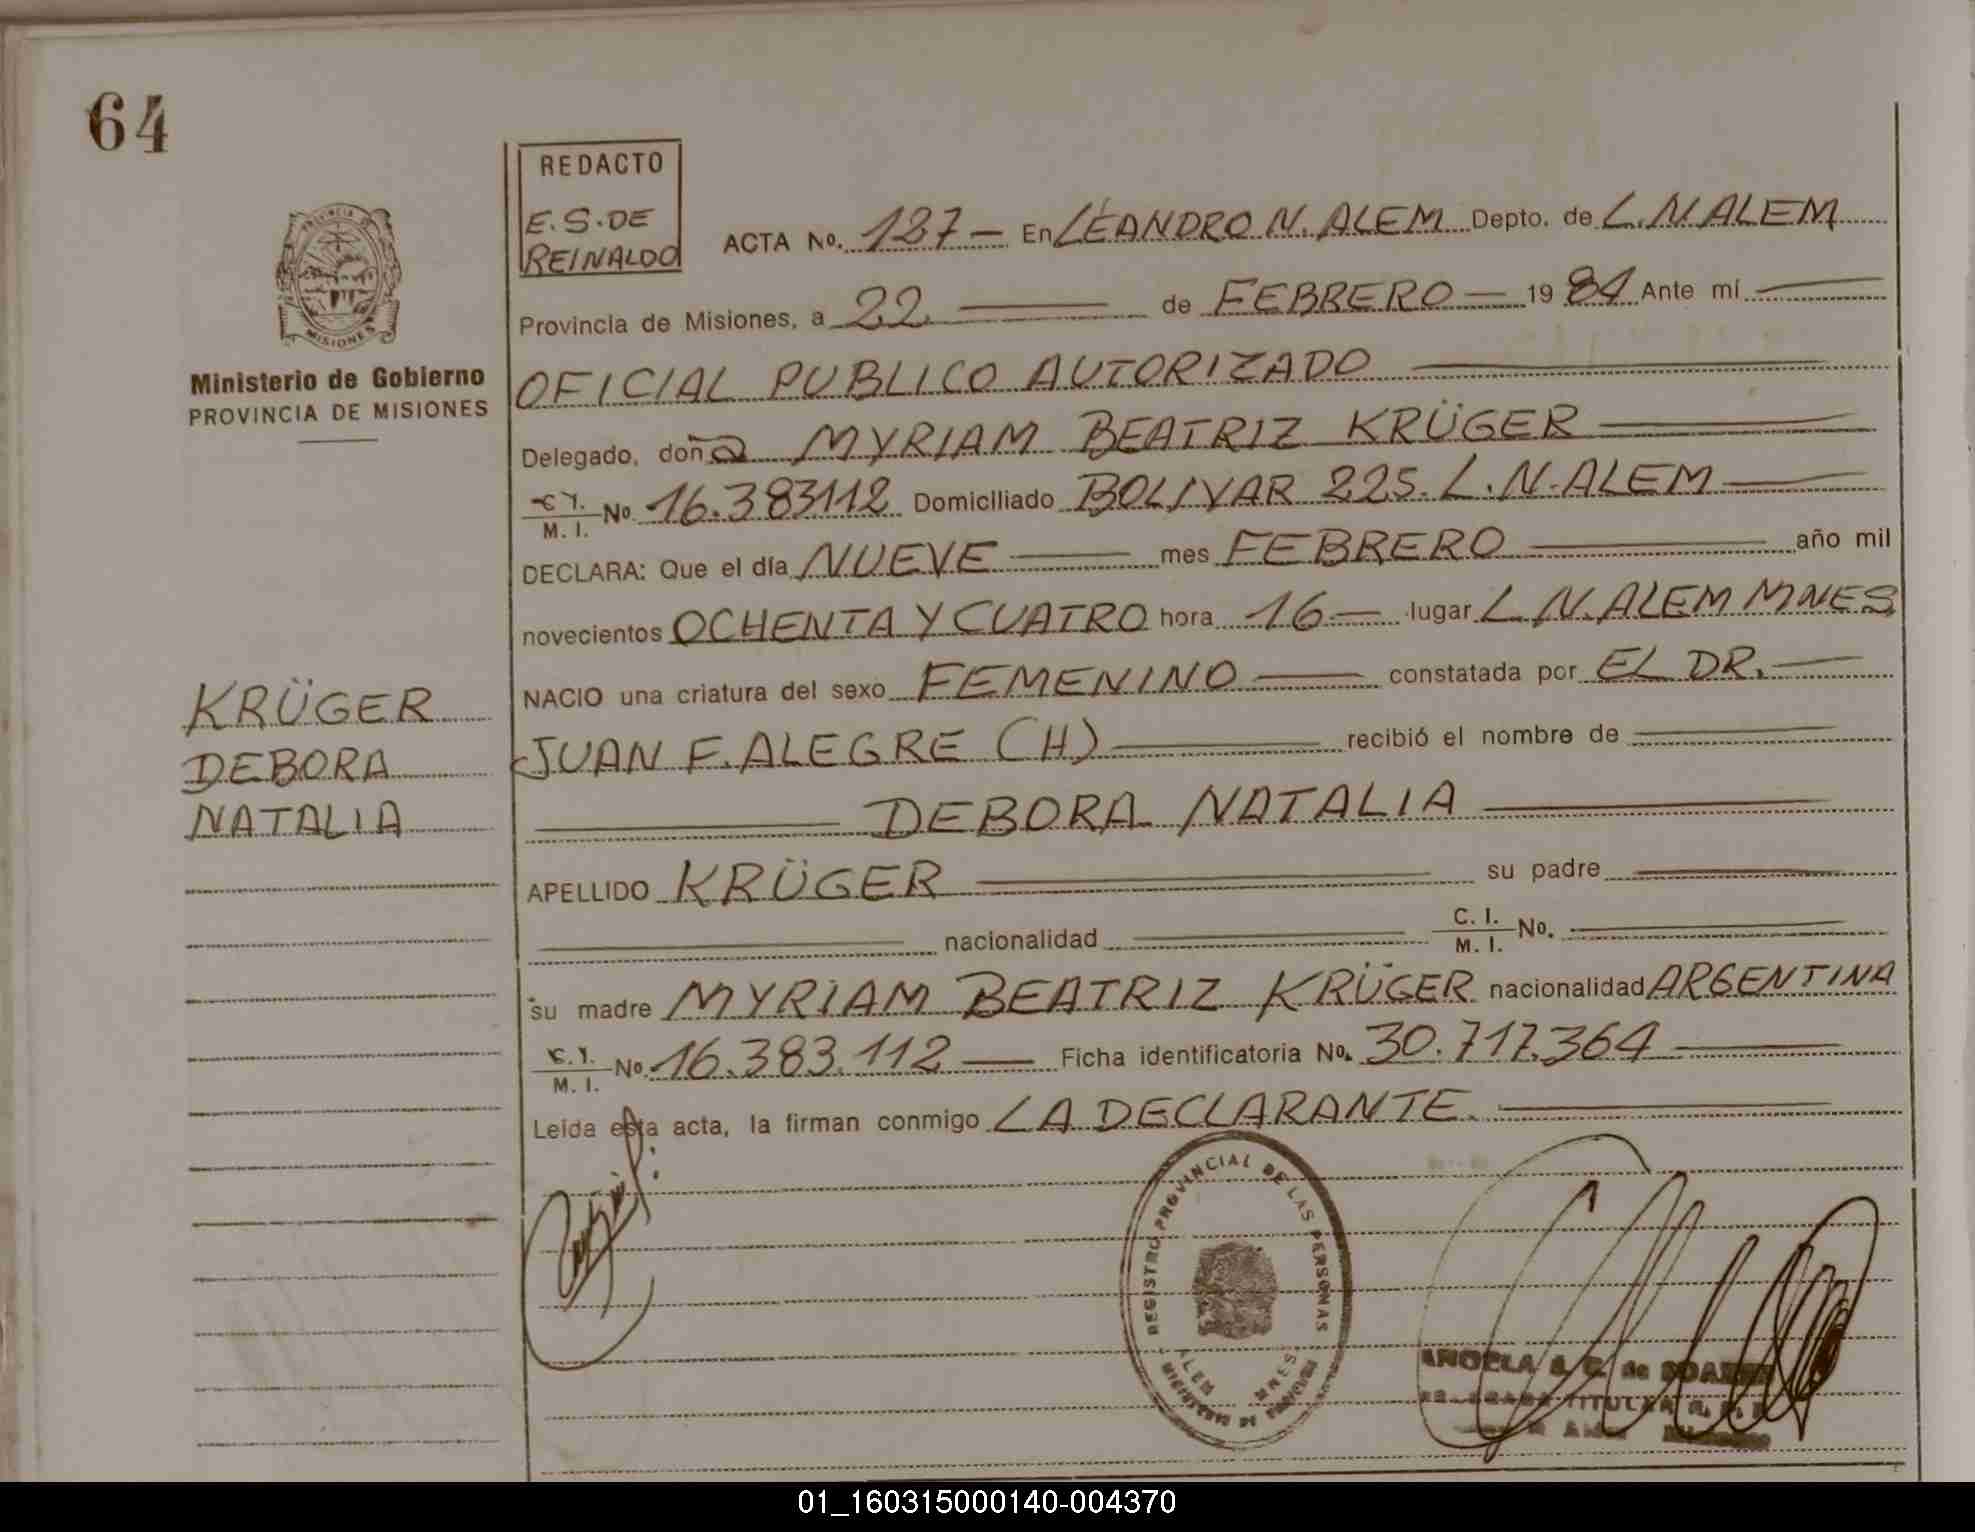 64
PROVINCIA DE
MISIONES
Ministerio de Gobierno
PROVINCIA DE MISIONES
KRÜGER
DEBORA
NATALIA
REDACTO
E.S. DE
REINALDO
ACTA No. 127 — En LEANDRO N. ALEM Depto. de L.N.ALEM
Provincia de Misiones, a 22 de FEBRERO — 19 84 Ante mí
OFICIAL PUBLICO AUTORIZADO
Delegado, doña MYRIAM BEATRIZ KRÜGER
C. I. / M. I. No. 16.383112 Domiciliado BOLIVAR 225. L.N.ALEM
DECLARA: Que el día NUEVE mes FEBRERO año mil
novecientos OCHENTA Y CUATRO hora 16 — lugar L.N.ALEM MNES
NACIO una criatura del sexo FEMENINO constatada por EL DR.
JUAN F. ALEGRE (H) recibió el nombre de
DEBORA NATALIA
APELLIDO KRÜGER su padre
nacionalidad C. I. / M. I. No.
su madre MYRIAM BEATRIZ KRÜGER nacionalidad ARGENTINA
C. I. / M. I. No. 16.383.112 Ficha identificatoria No. 30.717.364
Leída esta acta, la firman conmigo LA DECLARANTE.
REGISTRO PROVINCIAL DE LAS PERSONAS
ALEM MNES.
MINISTERIO DE GOBIERNO
de SOAREZ
TITULAR
01_160315000140-004370